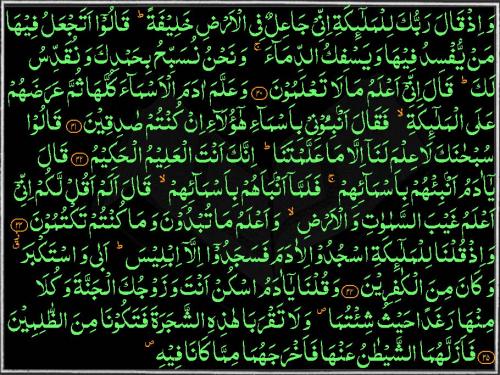 وَ اِذْ قَالَ رَبُّكَ لِلْمَلٰٓىِٕكَةِ اِنِّیْ جَاعِلٌ فِی الْاَرْضِ خَلِیْفَةً ؕ قَالُوْۤا اَتَجْعَلُ فِیْهَا
مَنْ یُّفْسِدُ فِیْهَا وَ یَسْفِكُ الدِّمَآءَ ۚ وَ نَحْنُ نُسَبِّحُ بِحَمْدِكَ وَ نُقَدِّسُ
لَكَ ؕ قَالَ اِنِّیْۤ اَعْلَمُ مَا لَا تَعْلَمُوْنَ ۝۳۰ وَ عَلَّمَ اٰدَمَ الْاَسْمَآءَ كُلَّهَا ثُمَّ عَرَضَهُمْ
عَلَی الْمَلٰٓىِٕكَةِ ۙ فَقَالَ اَنْۢبِـُٔوْنِیْ بِاَسْمَآءِ هٰۤؤُلَآءِ اِنْ كُنْتُمْ صٰدِقِیْنَ ۝۳۱ قَالُوْا
سُبْحٰنَكَ لَا عِلْمَ لَنَاۤ اِلَّا مَا عَلَّمْتَنَا ؕ اِنَّكَ اَنْتَ الْعَلِیْمُ الْحَكِیْمُ ۝۳۲ قَالَ
یٰۤاٰدَمُ اَنْۢبِئْهُمْ بِاَسْمَآىِٕهِمْ ۚ فَلَمَّاۤ اَنْۢبَاَهُمْ بِاَسْمَآىِٕهِمْ ۙ قَالَ اَلَمْ اَقُلْ لَّكُمْ اِنِّیْۤ
اَعْلَمُ غَیْبَ السَّمٰوٰتِ وَ الْاَرْضِ ۙ وَ اَعْلَمُ مَا تُبْدُوْنَ وَ مَا كُنْتُمْ تَكْتُمُوْنَ ۝۳۳
وَ اِذْ قُلْنَا لِلْمَلٰٓىِٕكَةِ اسْجُدُوْا لِاٰدَمَ فَسَجَدُوْۤا اِلَّاۤ اِبْلِیْسَ ؕ اَبٰی وَ اسْتَكْبَرَ
وَ كَانَ مِنَ الْكٰفِرِیْنَ ۝۳۴ وَ قُلْنَا یٰۤاٰدَمُ اسْكُنْ اَنْتَ وَ زَوْجُكَ الْجَنَّةَ وَ كُلَا
مِنْهَا رَغَدًا حَیْثُ شِئْتُمَا ۪ وَ لَا تَقْرَبَا هٰذِهِ الشَّجَرَةَ فَتَكُوْنَا مِنَ الظّٰلِمِیْنَ
۝۳۵ فَاَزَلَّهُمَا الشَّیْطٰنُ عَنْهَا فَاَخْرَجَهُمَا مِمَّا كَانَا فِیْهِ ۪